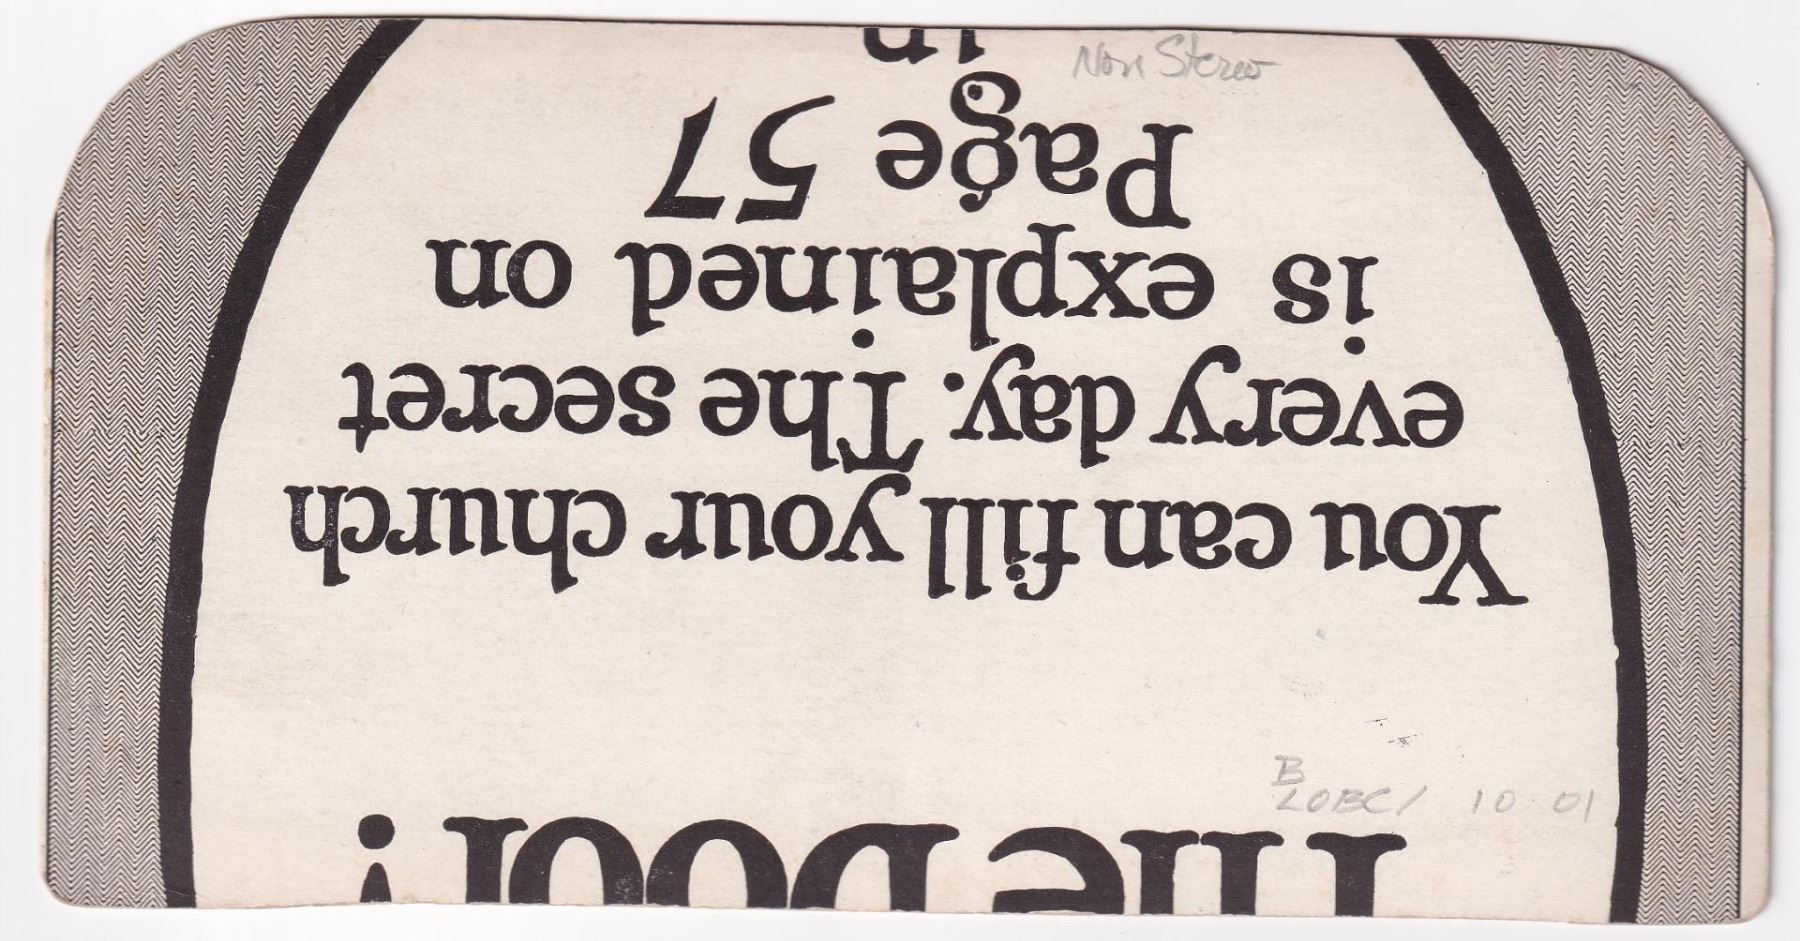 The Door!
You can fill your church
every day. The secret
is explained on
Page 57
in
Non Stereo
B
LOBC/ 10 01